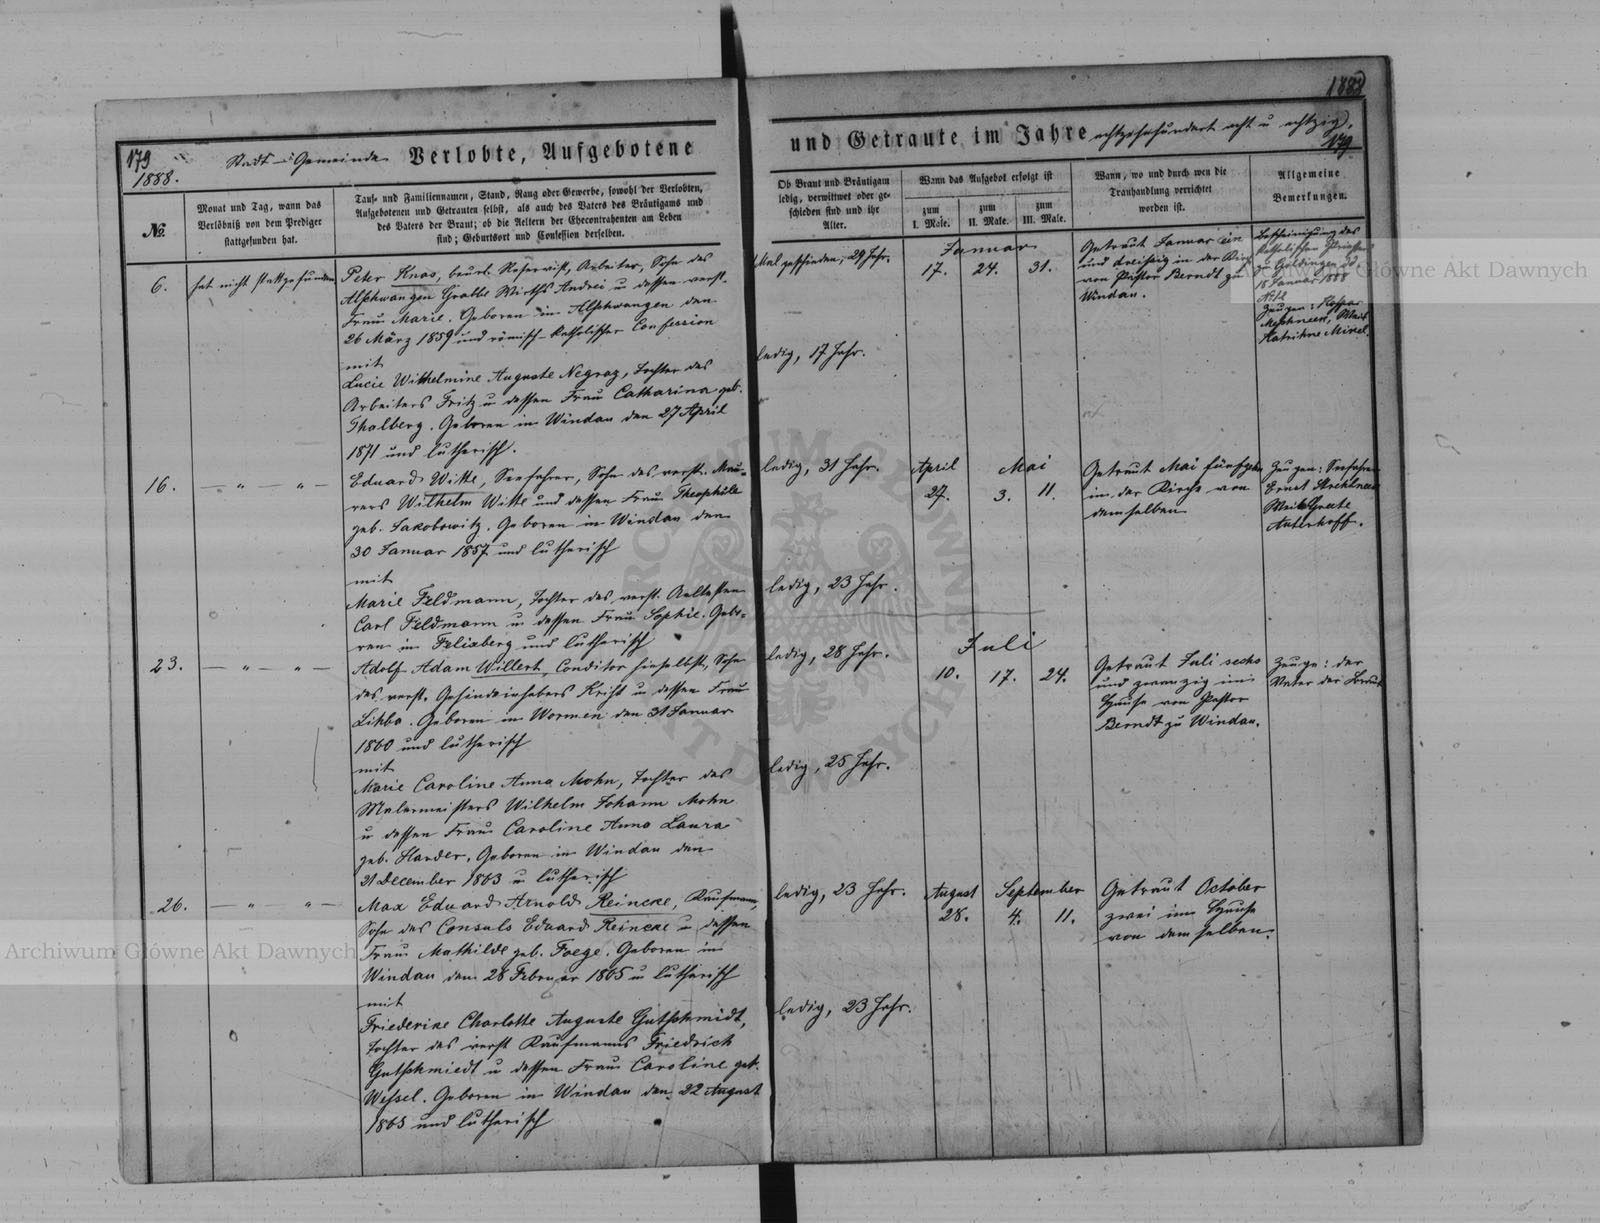 1888
179
1888.
Stadt-Gemeinde Verlobte, Aufgebotene
und Getraute im Jahre achtzehnhundert acht u achtzig.
179.
No.
Monat und Tag, wann das
Verlöbniß von dem Prediger
stattgefunden hat.
Tauf- und Familiennamen, Stand, Rang oder Gewerbe, sowohl der Verlobten,
Aufgebotenen und Getrauten selbst, als auch des Vaters des Bräutigams und
des Vaters der Braut; ob die Aeltern der Ehecontrahenten am Leben
sind; Geburtsort und Confession derselben.
Ob Braut und Bräutigam
ledig, verwittwet oder ge-
schieden sind und ihr
Alter.
Wann das Aufgebot erfolgt ist
zum
I. Male.
zum
II. Male.
zum
III. Male.
Wann, wo und durch wen die
Trauhandlung verrichtet
worden ist.
Allgemeine
Bemerkungen.
6.
hat nicht stattgefunden
Peter Knas, beurl. Reservist, Arbeiter, Sohn des
Alschwangen Wirths Andrei u dessen verst.
Frau Marie. Geboren in Alschwangen den
26 März 1859 und römisch-katholischer Confession
mit
Lucie Wilhelmine Auguste Negraz, Tochter des
Arbeiters Fritz u dessen Frau Catharina geb.
Thalberg. Geboren in Windau den 27 April
1871 und lutherisch.
geschieden, 29 Jahr.
ledig, 17 Jahr.
Januar
17. 24. 31.
Getraut Januar ein
und dreißig in der Kirche
von Pastor Berndt zu
Windau.
Bescheinigung des
katholischen Priesters
18 Januar 1888
Zeugen:
16.
— " — " —
Eduard Witte, Seefahrer, Sohn des verst. Mau-
rers Wilhelm Witte und dessen Frau Theophile
geb. Jakobowitz. Geboren in Windau den
30 Januar 1857 und lutherisch
mit
Marie Feldmann, Tochter des verst. Aeltesten
Carl Feldmann u dessen Frau Sophie. Gebo-
ren in Felixberg und lutherisch
ledig, 31 Jahr.
ledig, 23 Jahr.
April Mai
27. 3. 11.
Getraut Mai fünfzehn
in der Kirche von
demselben
Zeugen: Seefahrer
Ernst
Greete
23.
— " — " —
Adolf Adam Willert, Conditor hieselbst, Sohn
des verst. Gesindeinhabers Krist u dessen Frau
Lihba. Geboren in Wormen den 31 Januar
1860 und lutherisch
mit
Marie Caroline Anna Mohn, Tochter des
Malermeisters Wilhelm Johann Mohn
u dessen Frau Caroline Anna Laura
geb. Harder. Geboren in Windau den
21 December 1863 u lutherisch
ledig, 28 Jahr.
ledig, 25 Jahr.
Juli
10. 17. 24.
Getraut Juli sechs
und zwanzig im
Hause von Pastor
Berndt zu Windau.
Zeuge: der
Vater der Braut
26.
— " — " —
Max Eduard Arnold Reincke, Kaufmann,
Sohn des Consuls Eduard Reincke u dessen
Frau Mathilde geb. Foege. Geboren in
Windau den 28 Februar 1865 u lutherisch
mit
Friederike Charlotte Auguste Gutschmidt,
Tochter des verst Kaufmanns Friedrich
Gutschmiedt u dessen Frau Caroline geb.
Wessel. Geboren in Windau den 22 August
1865 und lutherisch
ledig, 23 Jahr.
ledig, 23 Jahr.
August September
28. 4. 11.
Getraut October
zwei im Hause
von demselben.
Archiwum Główne Akt Dawnych
Archiwum Główne Akt Dawnych
ARCHIWUM GŁÓWNE AKT DAWNYCH